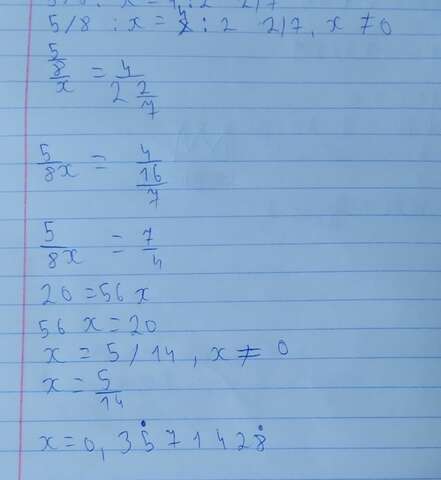 5/8 : x = 4 : 2 2/7, x ≠ 0
5/8/x = 4/2 2/7
5/8x = 4/16/7
5/8x = 7/4
20 = 56x
56 x = 20
x = 5/14, x ≠ 0
x = 5/14
x = 0,35̇71428̇